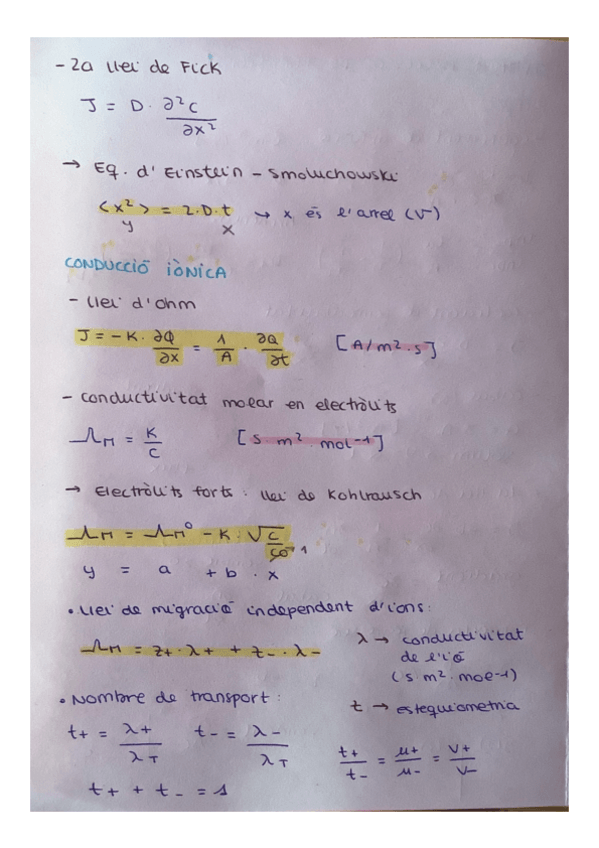 - 2a llei de Fick
J = D · ∂²c / ∂x²
→ Eq. d'Einstein - Smoluchowski
<x²> = 2·D·t ↝ x és l'arrel (√)
y x
CONDUCCIÓ IÒNICA
- llei d'ohm
J = -K · ∂φ/∂x = 1/A · ∂Q/∂t [A/m²·s]
- conductivitat molar en electròlits
ΛM = K/C [S m² · mol⁻¹]
→ Electròlits forts : llei de Kohlrausch
ΛM = ΛM⁰ - K · √C/C⁰ → 1
y = a + b · x
• llei de migració independent d'ions:
ΛM = z+ · λ+ + z- · λ-
λ → conductivitat
de l'ió
(S m² · mol⁻¹)
• Nombre de transport :
t → estequiometria
t+ = λ+/λT t- = λ-/λT
t+/t- = μ+/μ- = V+/V-
t+ + t- = 1